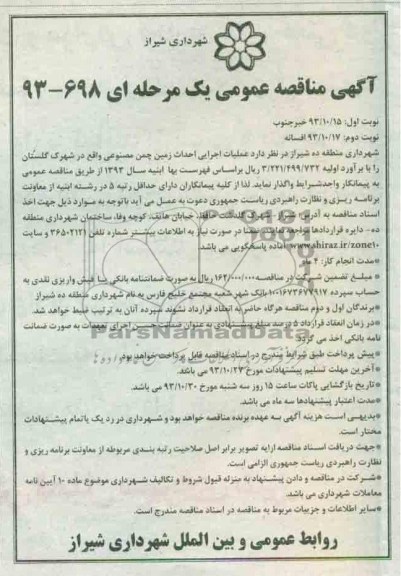 شهرداری شیراز
آگهی مناقصه عمومی یک مرحله ای ۶۹۸-۹۳
نوبت اول: ۹۳/۱۰/۱۵ خبرجنوب
نوبت دوم: ۹۳/۱۰/۱۷ افسانه
شهرداری منطقه ده شیراز در نظر دارد عملیات اجرایی احداث زمین چمن مصنوعی واقع در شهرک گلستان
را با برآورد اولیه ۳/۲۲۱/۴۹۹/۷۳۲ ریال براساس فهرست بها ابنیه سال ۱۳۹۳ از طریق مناقصه عمومی
به پیمانکار واجدشرایط واگذار نماید. لذا از کلیه پیمانکاران دارای حداقل رتبه ۵ در رشته ابنیه از معاونت
برنامه ریزی و نظارت راهبردی ریاست جمهوری دعوت به عمل می آید باتوجه به موارد ذیل جهت اخذ
اسناد مناقصه به آدرس شیراز - شهرک گلدشت حافظ، خیابان هاتف، کوچه وفا، ساختمان شهرداری منطقه
ده - دایره قراردادها مراجعه نمایند. ضمنا در صورت نیاز به اطلاعات بیشتر شماره تلفن ۳۶۵۰۲۱۲۱ و سایت
www.shiraz.ir/zone10 آماده پاسخگویی می باشد.
*مدت انجام کار: ۴ ماه
* مبلغ تضمین شرکت در مناقصه ۱۶۲/۰۰۰/۰۰۰ ریال به صورت ضمانتنامه بانکی یا فیش واریزی نقدی به
حساب سپرده ۱۰۰۱۶۷۳۶۷۷۹۱۷ بانک شهر شعبه مجتمع خلیج فارس به نام شهرداری منطقه ده شیراز
*برندگان اول و دوم مناقصه هرگاه حاضر به انعقاد قرارداد نشوند سپرده آنان به ترتیب ضبط خواهد شد.
*در زمان انعقاد قرارداد ۵ درصد مبلغ پیشنهادی به عنوان ضمانت حسن اجرای تعهدات به صورت ضمانت
نامه بانکی اخذ می گردد.
* پیش پرداخت طبق شرایط مندرج در اسناد مناقصه قابل پرداخت خواهد بود.
* آخرین مهلت تسلیم پیشنهادات مورخ ۹۳/۱۰/۲۷ می باشد.
*تاریخ بازگشایی پاکات ساعت ۱۵ روز سه شنبه مورخ ۹۳/۱۰/۳۰ می باشد.
*مدت اعتبار پیشنهادها سه ماه می باشد.
*بدیهی است هزینه آگهی به عهده برنده مناقصه خواهد بود و شهرداری در رد یک یاتمام پیشنهادات
مختار است.
*جهت دریافت اسناد مناقصه ارایه تصویر برابر اصل صلاحیت رتبه بندی مربوطه از معاونت برنامه ریزی و
نظارت راهبردی ریاست جمهوری الزامی است.
*شرکت در مناقصه و دادن پیشنهاد به منزله قبول شروط و تکالیف شهرداری موضوع ماده ۱۰ آیین نامه
معاملات شهرداری می باشد.
*سایر اطلاعات و جزییات مربوط به مناقصه در اسناد مناقصه مندرج است.
روابط عمومی و بین الملل شهرداری شیراز
ParsNamadData